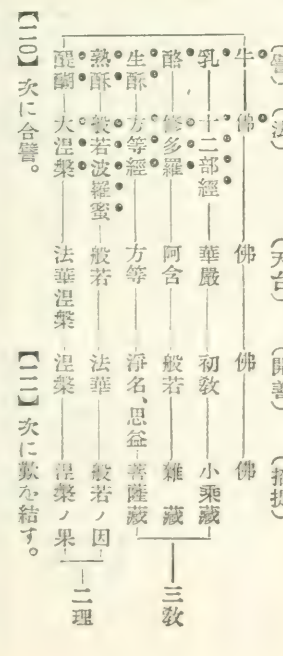 (譬) (法) (天台) (開善) (招提)
牛 佛 佛 佛 佛
乳 十二部經 華嚴 初敎 小乘藏
酪 修多羅 阿含 般若 雜藏
生酥 方等經 方等 淨名、思益 菩薩藏
三敎
熟酥 般若波羅蜜 般若 法華 般若ノ因
醍醐 大涅槃 法華涅槃 涅槃 涅槃ノ果
二理
【二〇】 次に合譬。
【二一】 次に歎を結す。